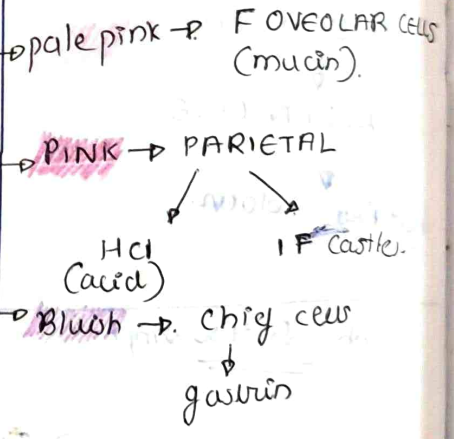 pale pink → FOVEOLAR CELLS
(mucin).
PINK → PARIETAL
HCl IF Castle.
(acid)
Bluish → chief cells
gastrin